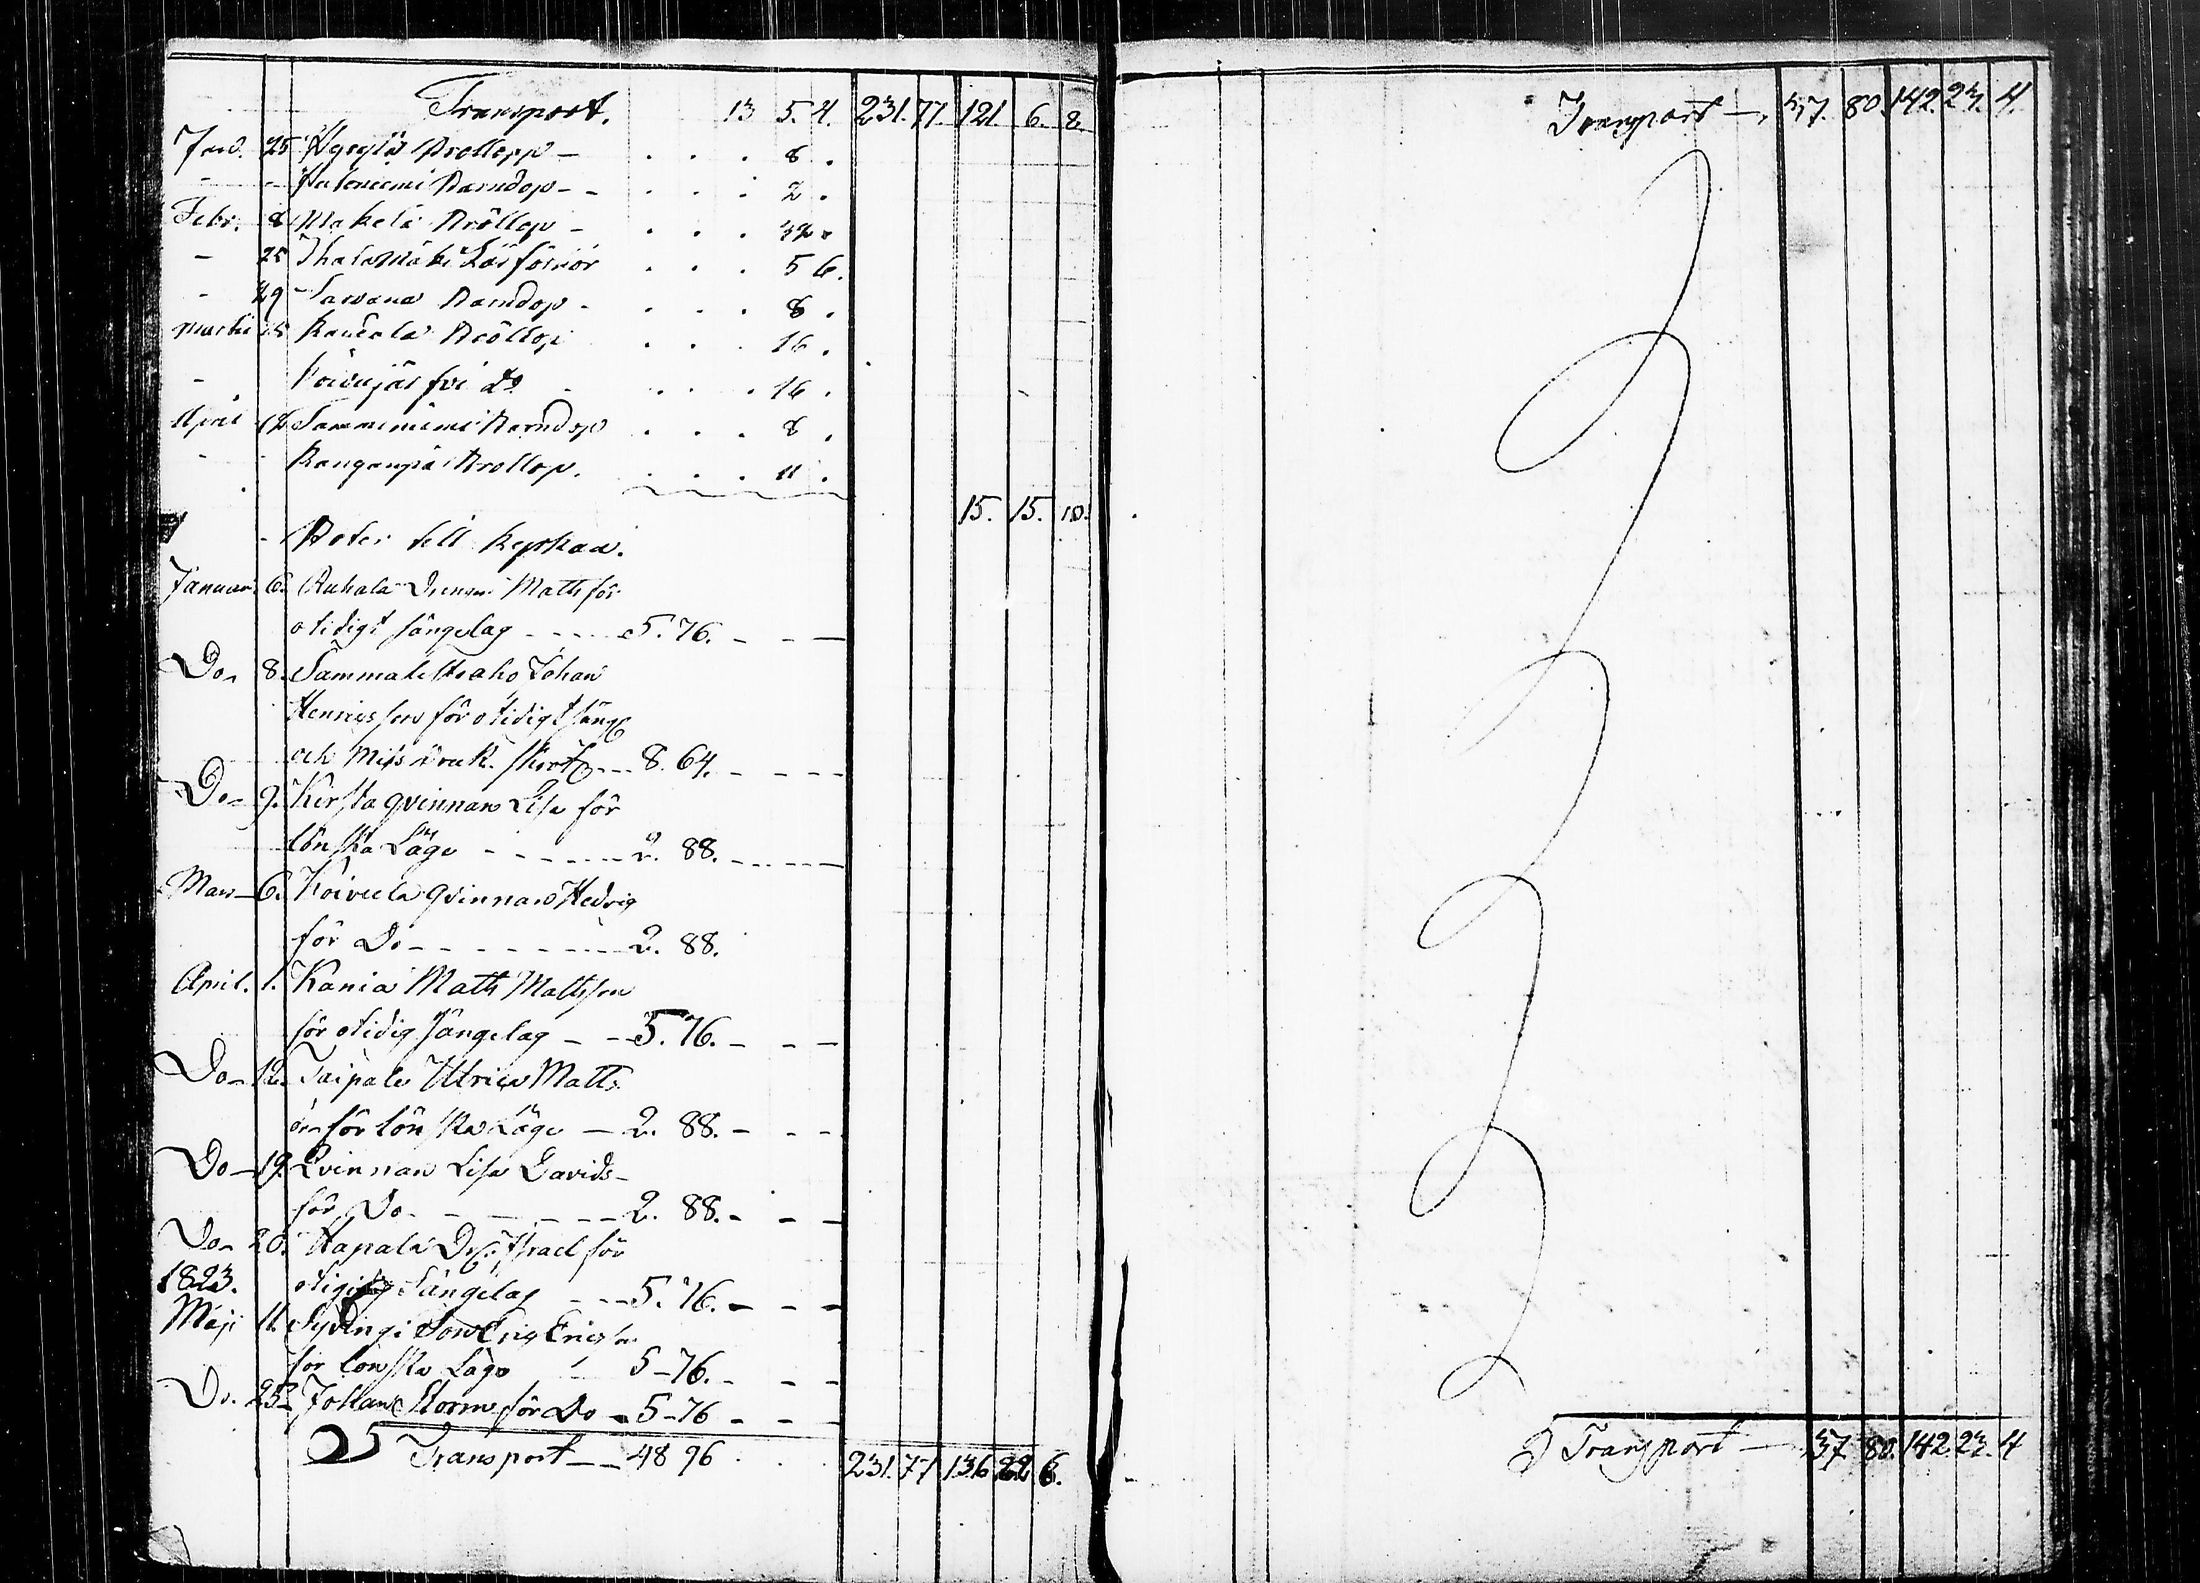 Transport. 13 5. 4. 231. 77. 121. 6. 8.
25 Hyrylä Bröllop - . . . 8 .
- - Barndop - - . . . 2 .
Febr. 8 Makelä Bröllop - . . . 32 .
- 25 . . . 5 6.
- 29 Barndop - . . . 8 .
Martii 25 Bröllop . . . 16 .
- do - . . . 16 .
April 12 Barndop . . . 8 .
- - Bröllop. . . . 11 .
15. 15. 10.
- Böter till kyrkan.
Januari 6. Ruhala Matts för
otidigt sängelag - - - - 5. 76. - - -
Do - 8. Sammalistoaho Johan
Henricsson för otidigt säng
och missbruk - - 8. 64. - - - -
Do - 9. Kirsta qvinnan Lisa för
lönska Läge - - - - - - 2. 88. - - - -
Mars - 6. Koivula qvinnan Hedvig
för Do - - - - - - - 2. 88.
April. 1. Kania Matts Mattsson
för otidig sängelag - - 5. 76. - - -
Do - 12. Taipale Ulrica Matts
för lönska Läge - 2. 88. - - -
Do - 19. Qvinnan Lisa Davids-
för Do - - - - - 2. 88. - - -
Do - 20. Hapala Israel för
Sängelag - - - 5. 76. - - -
1823.
Maji 11. Eric Ericss
för lönska Läge 5 - 76. - - -
Do. 25 - Johan Storm för Do - 5 - 76 - - -
Transport - - 48 96 231. 77 136 22 6.
Transport - 37. 80. 142. 23. 4.
Transport - 37. 80. 142. 23. 4